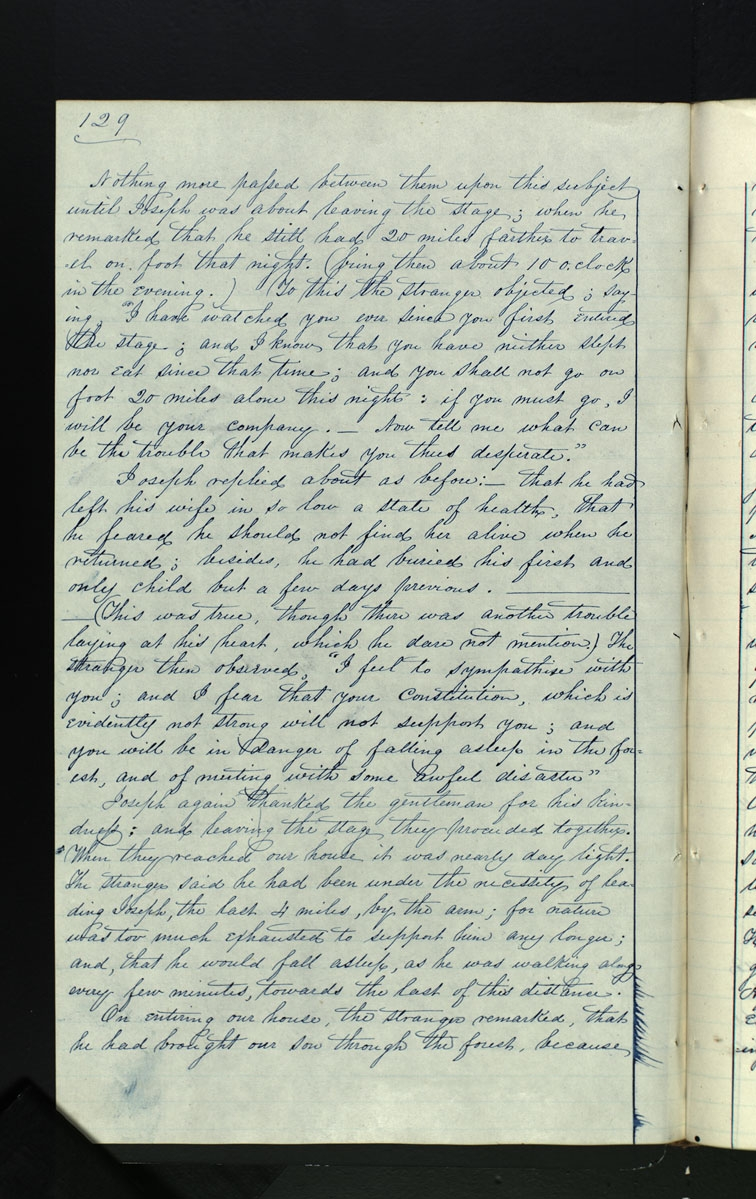 129
Nothing more passed between them upon this subject
until Joseph was about leaving the stage; when he
remarked that he still had 20 miles farther to trav-
-el on foot that night. (being then about 10 o.clock
in the evening.) To this the stranger objected; say-
ing "I have watched you ever since you first entered
the stage; and I know that you have neither slept
nor eat since that time; and you shall not go on
foot 20 miles alone this night: if you must go, I
will be your company.— Now tell me what can
be the trouble that makes you thus desperate."
Joseph replied about as before:— that he had
left his wife in so low a state of health, that
he feared he should not find her alive when he
returned; besides, he had buried his first and
only child but a few days previous. ———
—(This was true, though there was another trouble
laying at his heart, which he dare not mention.) The
stranger then observed, "I feel to sympathise with
you; and I fear that your constitution, which is
evidently not strong will not support you; and
you will be in danger of falling asleep in the for=
est, and of meeting with some awful disaster"
Joseph again thanked the gentleman for his kin-
dness; and leaving the stage they proceeded together.
When they reached our house it was nearly day light.
The stranger said he had been under the necessity of lea-
ding Joseph, the last 4 miles, by the arm; for nature
was too much exhausted to support him any longer;
and, that he would fall asleep, as he was walking along
every few minutes, towards the last of this distance.
On entering our house, the stranger remarked, that
he had brought our son through the forest, because